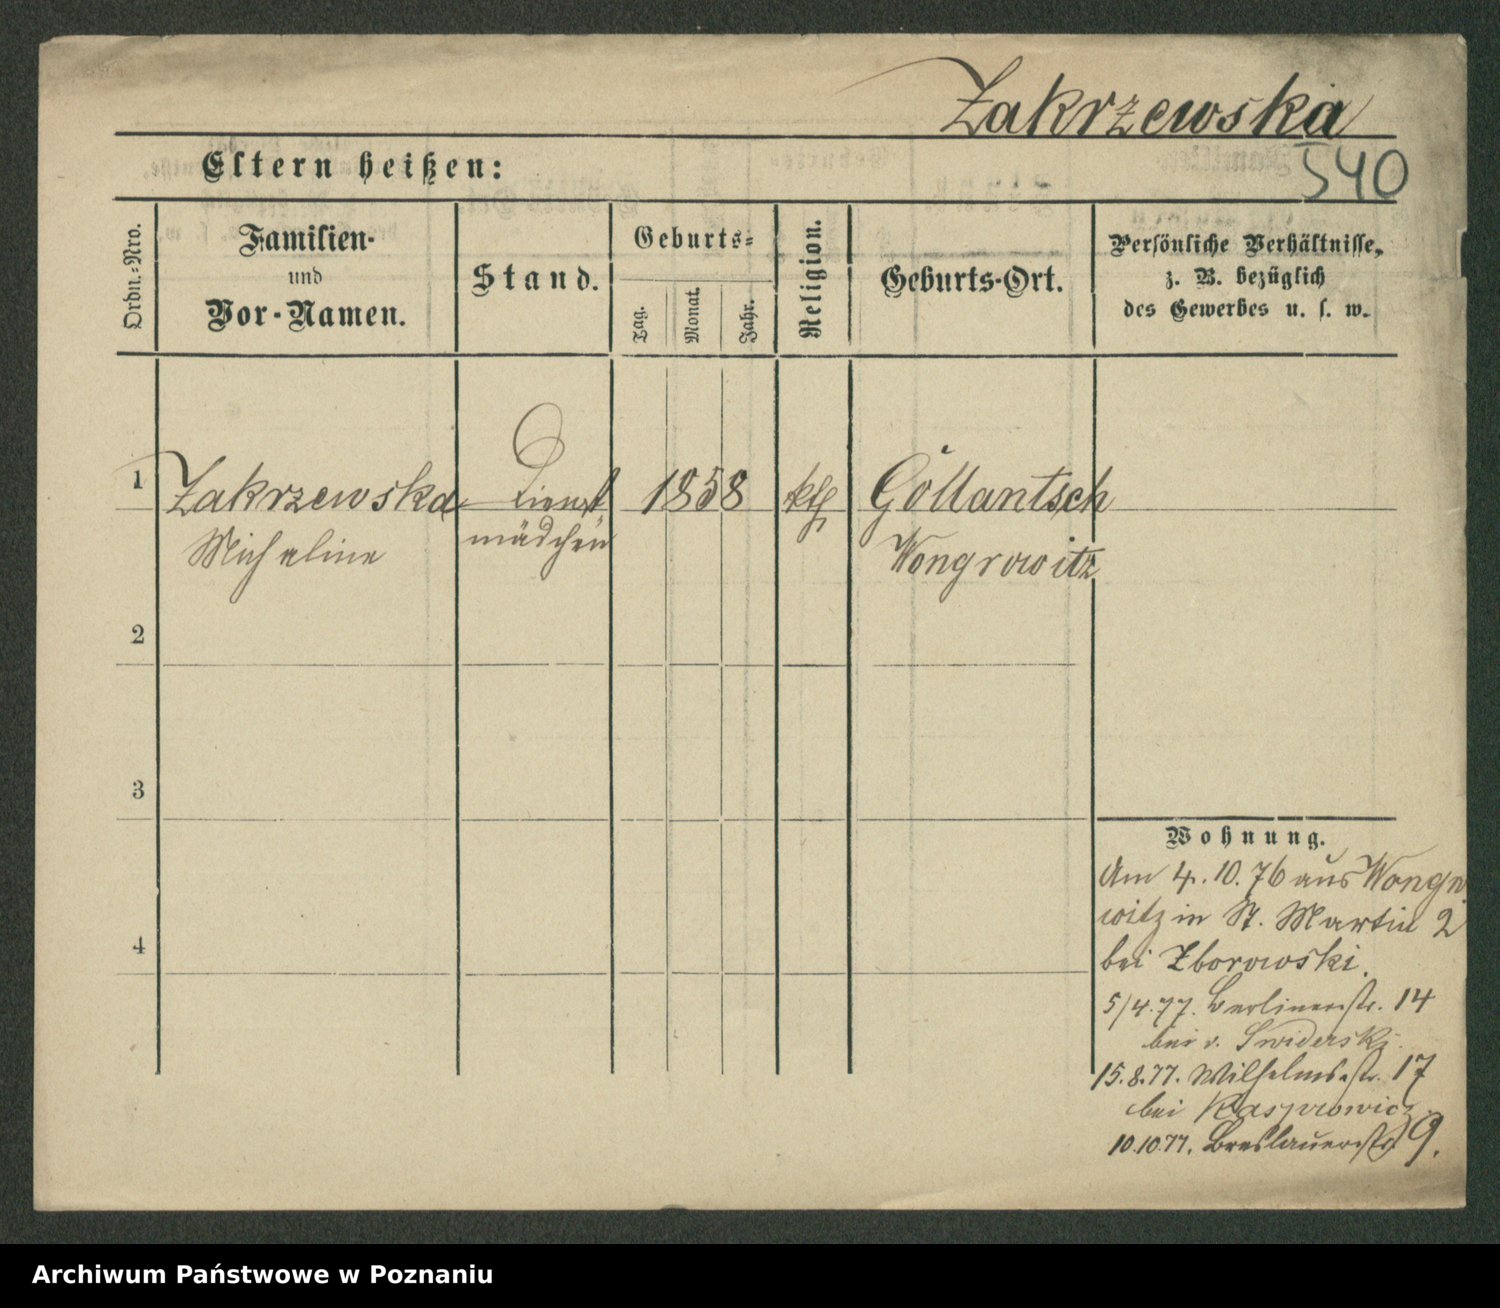 Zakrzewska
540
Eltern heißen:
Ordn.-Nro.
Familien-
und
Vor-Namen.
Stand.
Geburts-
Tag.
Monat.
Jahr.
Religion.
Geburts-Ort.
Persönliche Verhältnisse,
z. B. bezüglich
des Gewerbes u. s. w.
1
Zakrzewska
Michaline
Dienst
mädchen
1858
kth
Gollantsch
Wongrowitz
2
3
4
Wohnung.
Am 4.10.76 aus Wongro
witz in St. Martin 2
bei Zborowski.
5/4.77. Berlinerstr. 14
bei v. Swiderski.
15.8.77. Wilhelmsstr. 17
bei Kasprowicz.
10.10.77. Breslauerstr 9.
Archiwum Państwowe w Poznaniu